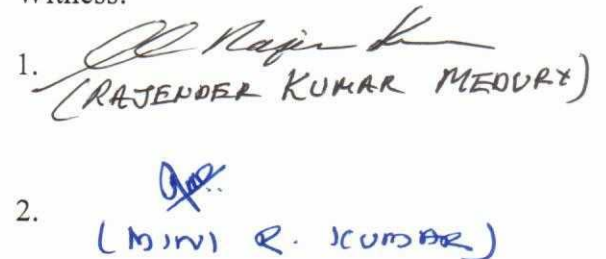 Witness:
1. Rajen K
(RAJENDER KUMAR MEDURY)
2.
(MINI R. KUMAR)